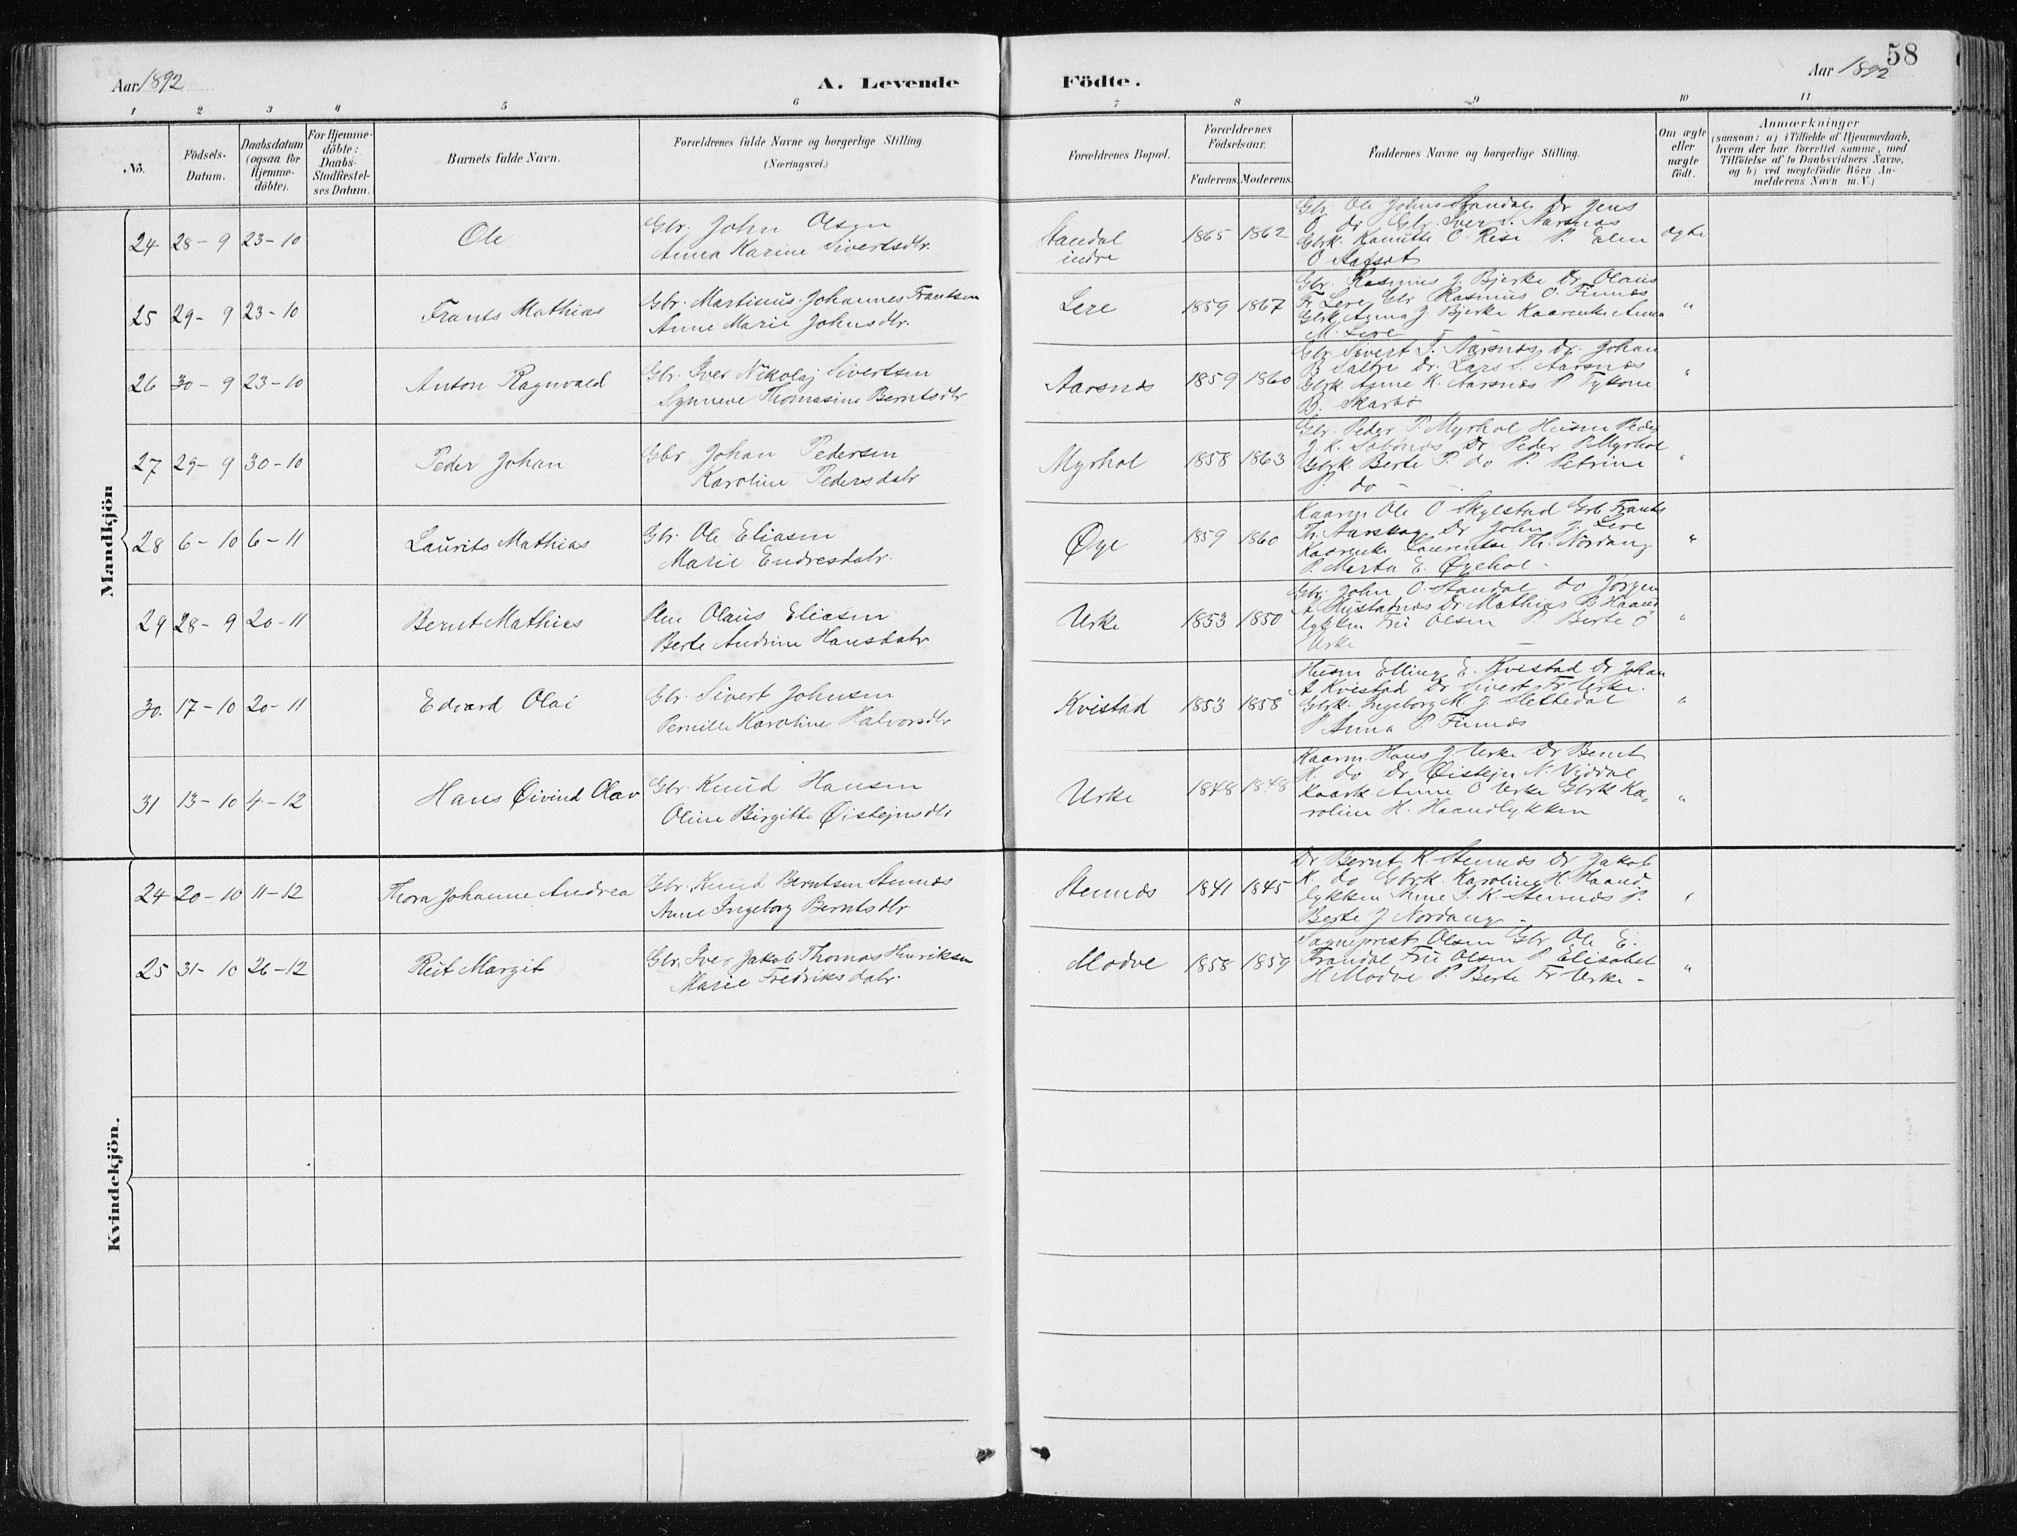 58
Aar 1892
A. Levende Födte.
Aar 1892
1 2 3 4 5 6 7 8 9 10 11
No.
Födsels-Datum.
Daabsdatum (ogsaa for Hjemme-döbte).
For Hjemme-döbte: Daabs-Stadfæstel-ses Datum.
Barnets fulde Navn.
Forældrenes fulde Navne og borgerlige Stilling.
(Næringsvei.)
Forældrenes Bopæl.
Forældrenes Födselsaar.
Faderens. Moderens.
Faddernes Navne og borgerlige Stilling.
Om ægte eller uægte födt.
Anmærkninger
(saasom: a) i Tilfælde af Hjemmedaab,
hvem der har forrettet samme, med
Tilföielse af to Daabsvidners Navne,
og b) ved uægtefödte Börn An-
melderens Navn m. V.)
Mandkjön
24 28-9 23-10 Ole
Gbr. John Olsen
Anna Karine Sivertsdtr.
Standal indre 1865 1862
Gbr. Ole Johns Standal Dr Jens
O do Gbr. Iver S. Aarsnæs
Gbrk. Kanutte O. Rise P. Elen
O Aarsæt
ægte
25 29-9 23-10 Frants Mathias
Gbr. Martinus Johannes Frantsen
Anne Marie Johnsdtr.
Lere 1859 1867
Gbr. Rasmus J. Bjerke Dr. Olaus
Fr. Lere Gbr Rasmus O. Finnæs
Gbrk Anna J. Bjerke Kaarenke Anna
M. Lere
"
26 30-9 23-10 Anton Ragnvald
Gbr. Iver Nikolaj Sivertsen
Synneve Thomasine Berntsdtr
Aarsnæs 1859 1860
Gbr. Sivert I. Aarsnæs Dr. Johan
B Sæltre Dr. Lars S. Aarsnæs
Gbrk Anne K. Aarsnæs P.
B. Skarbø
"
27 29-9 30-10 Peder Johan
Gbr Johan Pedersen
Karoline Pedersdatr
Myrhol 1858 1863
Gbr. Peder P. Myrhol Husm Peder
J. K. Dr Peder P. Myrhol
Gbrk Berte P. do P. Petrine
P. do -
"
28 6-10 6-11 Laurits Mathias
Gbr. Ole Eliasen
Marie Endresdatr.
Øye 1859 1860
Kaarm Ole O Skylstad Gbr Frants
Th. Aarskog Dr John J. Lere
Kaarenke Laurentse Th. Nordang
P Marta E. Øyehol -
"
29 28-9 20-11 Bernt Mathias
Olaus Eliasen
Berte Andrine Hansdatr
Urke 1853 1850
Gbr. John O. Standal do Jørgen
A Hustadnæs Dr Mathias B Haand
lykken Fru Olsen P Berte O
Urke
"
30. 17-10 20-11 Edvard Olai
Gbr. Sivert Johnsen
Pernille Karoline Halvorsdtr
Kvistad 1853 1858
Husm Elling E. Kvistad Dr Johan
A Kvistad Dr Sivert Fr Urke.
Gbrk. Ingeborg M J. Slettedal
P Anna P. Finnæs
"
31 13-10 4-12 Hans Øivind Olav
Gbr. Knud Hansen
Oline Birgitte Øistejnsdtr
Urke 1848 1848
Kaarm Hans J. Urke Dr Bernt
H. do Dr. Øistejn N. Viddal
Kaark Anne O Urke Gbrk Ka-
roline H. Haandlykken
"
Kvindekjön.
24 20-10 11-12 Thora Johanne Andrea
Gbr. Knud Berntsen Stennæs
Anne Ingeborg Berntsdtr
Stennæs 1841 1845
Dr Bernt K. Stennæs Dr Jakob
K. do Gbrk. Karoline H Haand
lykken Anne I. K. Stennæs P.
Berte J. Nordang -
"
25 31-10 26-12 Rut Margit
Gbr. Iver Jakob Thomas Henriksen
Marie Fredriksdatr.
Modve 1858 1859
Sogneprest Olsen Gbr Ole E.
Trandal Fru Olsen P Elisabet
H Modve P. Berte Fr Urke -
"